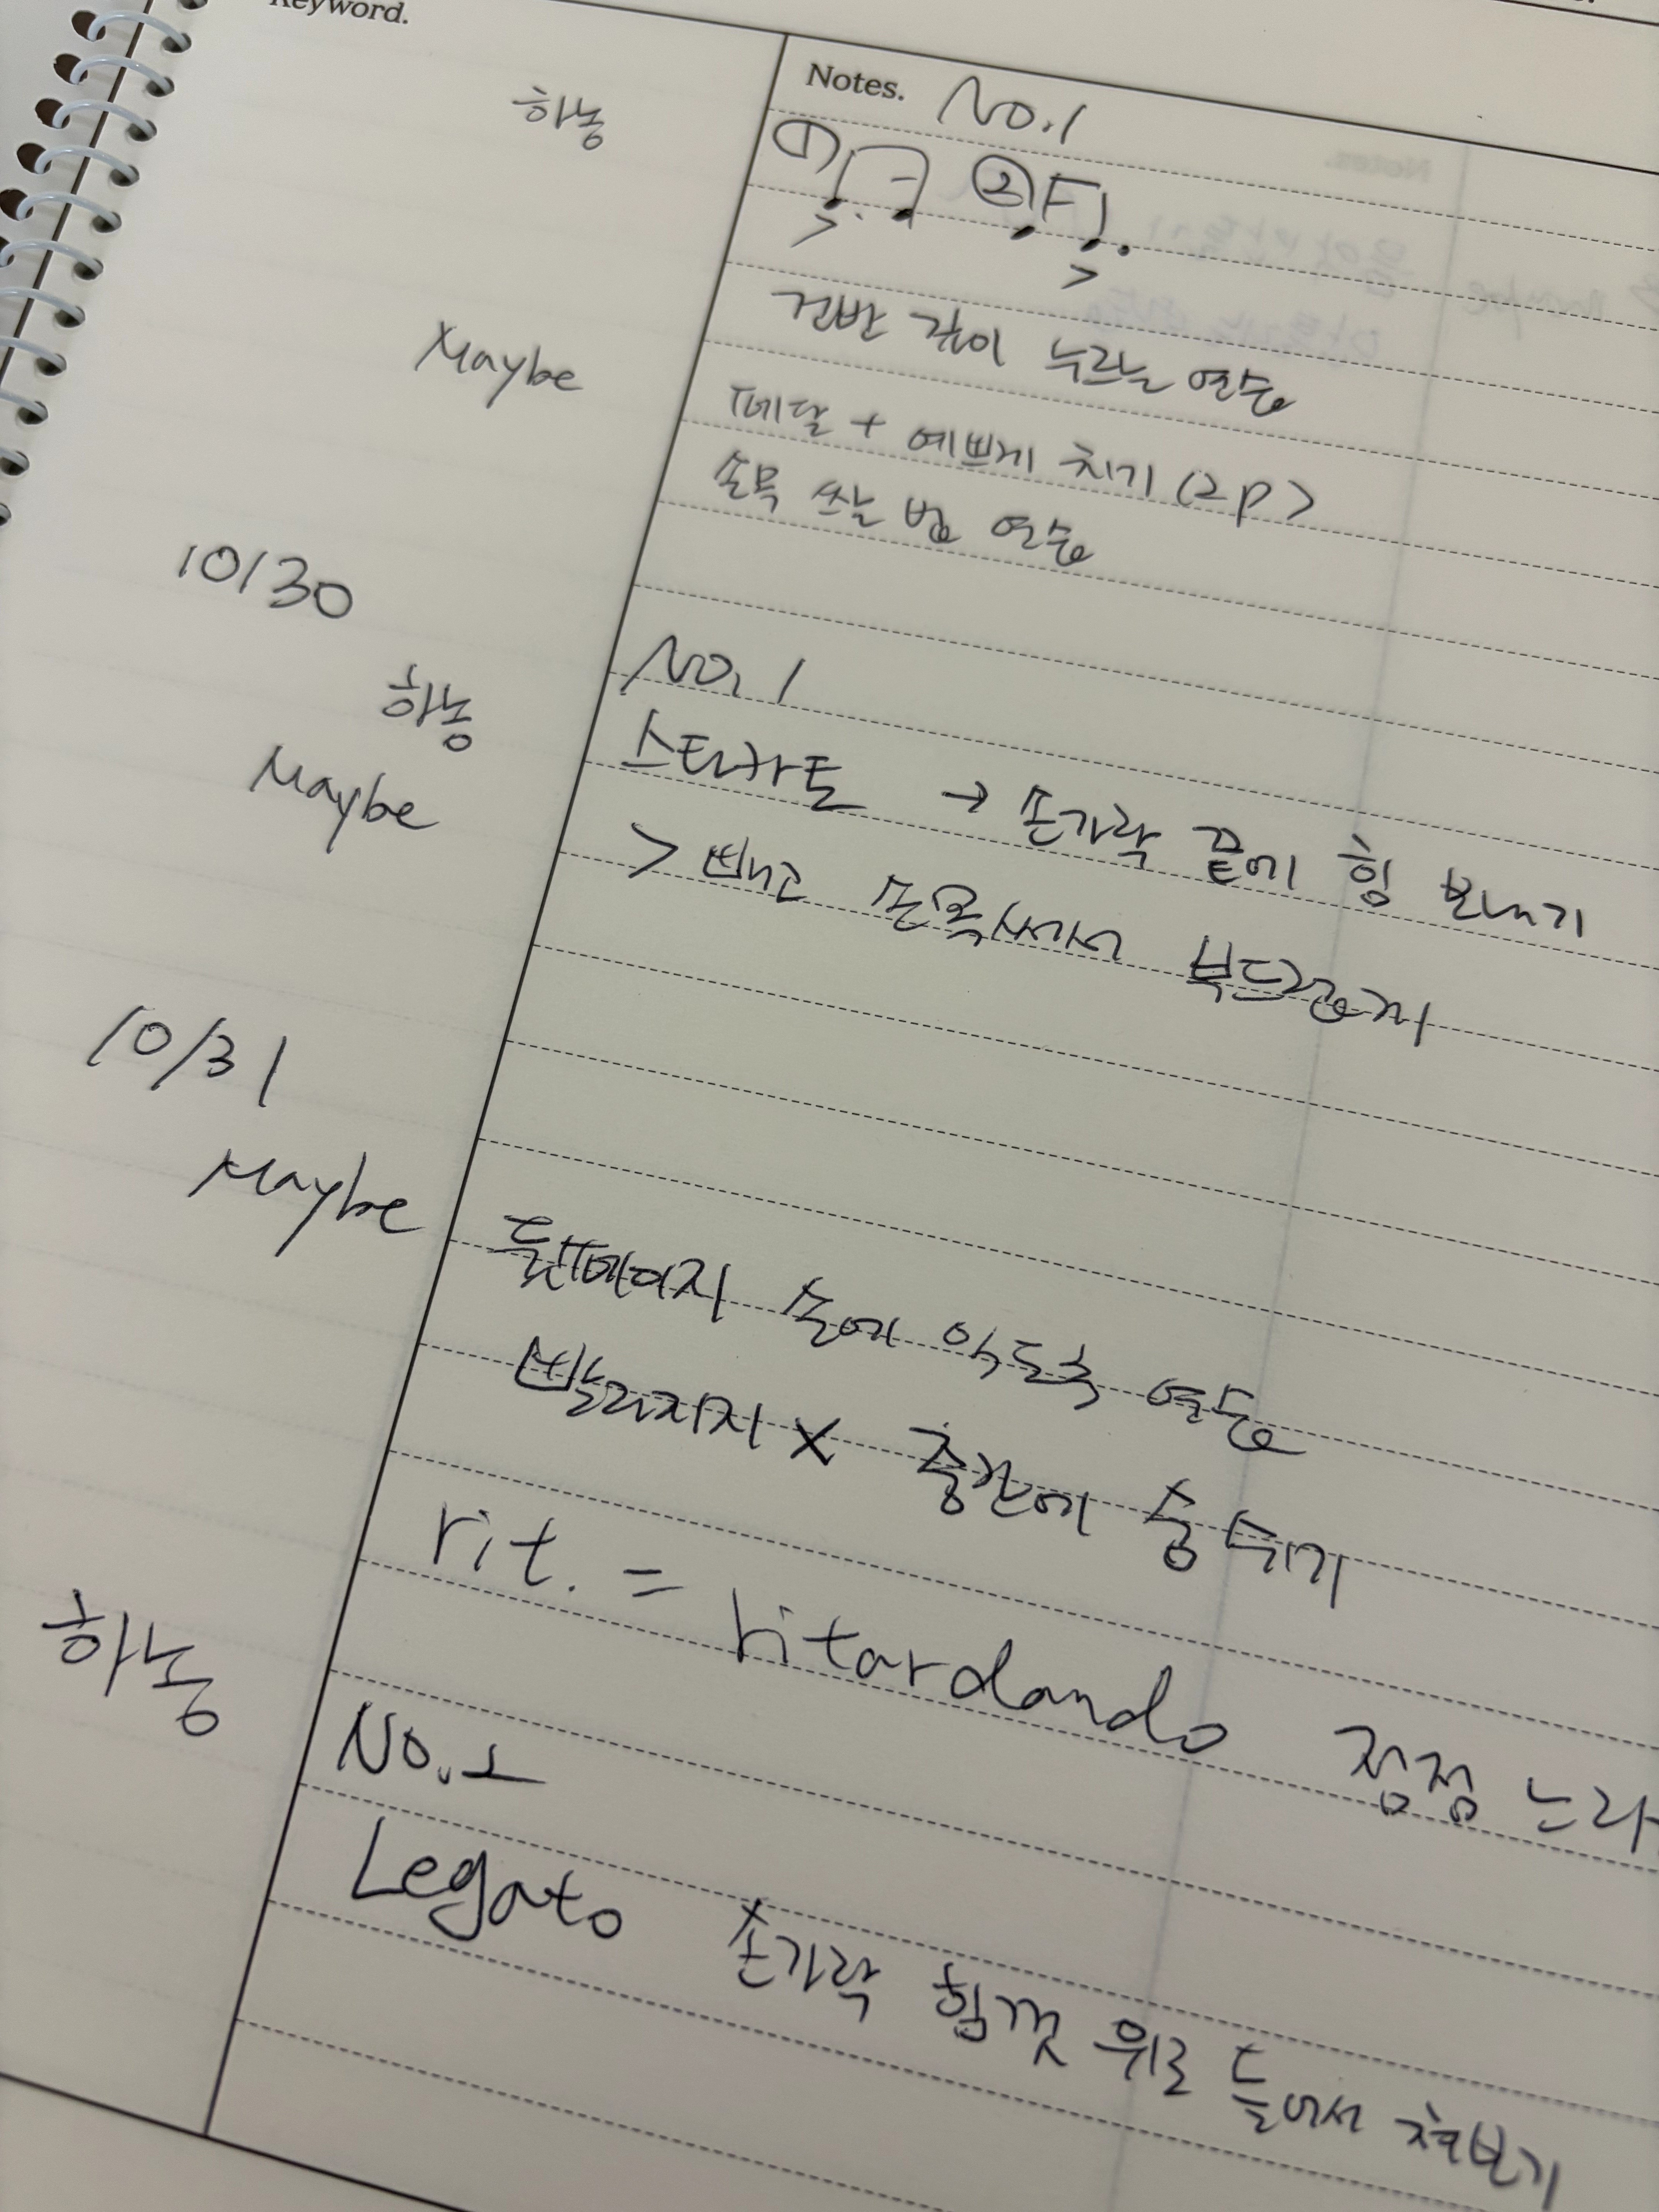 Keyword.
Notes. No.1
하농
① ②
건반 깊이 누르는 연습
Maybe
페달 + 예쁘게 치기 (2p)
손목 쓰는 법 연습
10/30
하농 No. 1
Maybe 스타카토 → 손가락 끝에 힘 보내기
> 빼고 손목써서 부드럽게
10/31
Maybe 둘쨰페이지 손에 익도록 연습
빨라지지 X 중간에 숨 쉬기
rit. = ritardando 점점 느리
하농 No.2
Legato 손가락 힘껏 위로 들어서 쳐보기